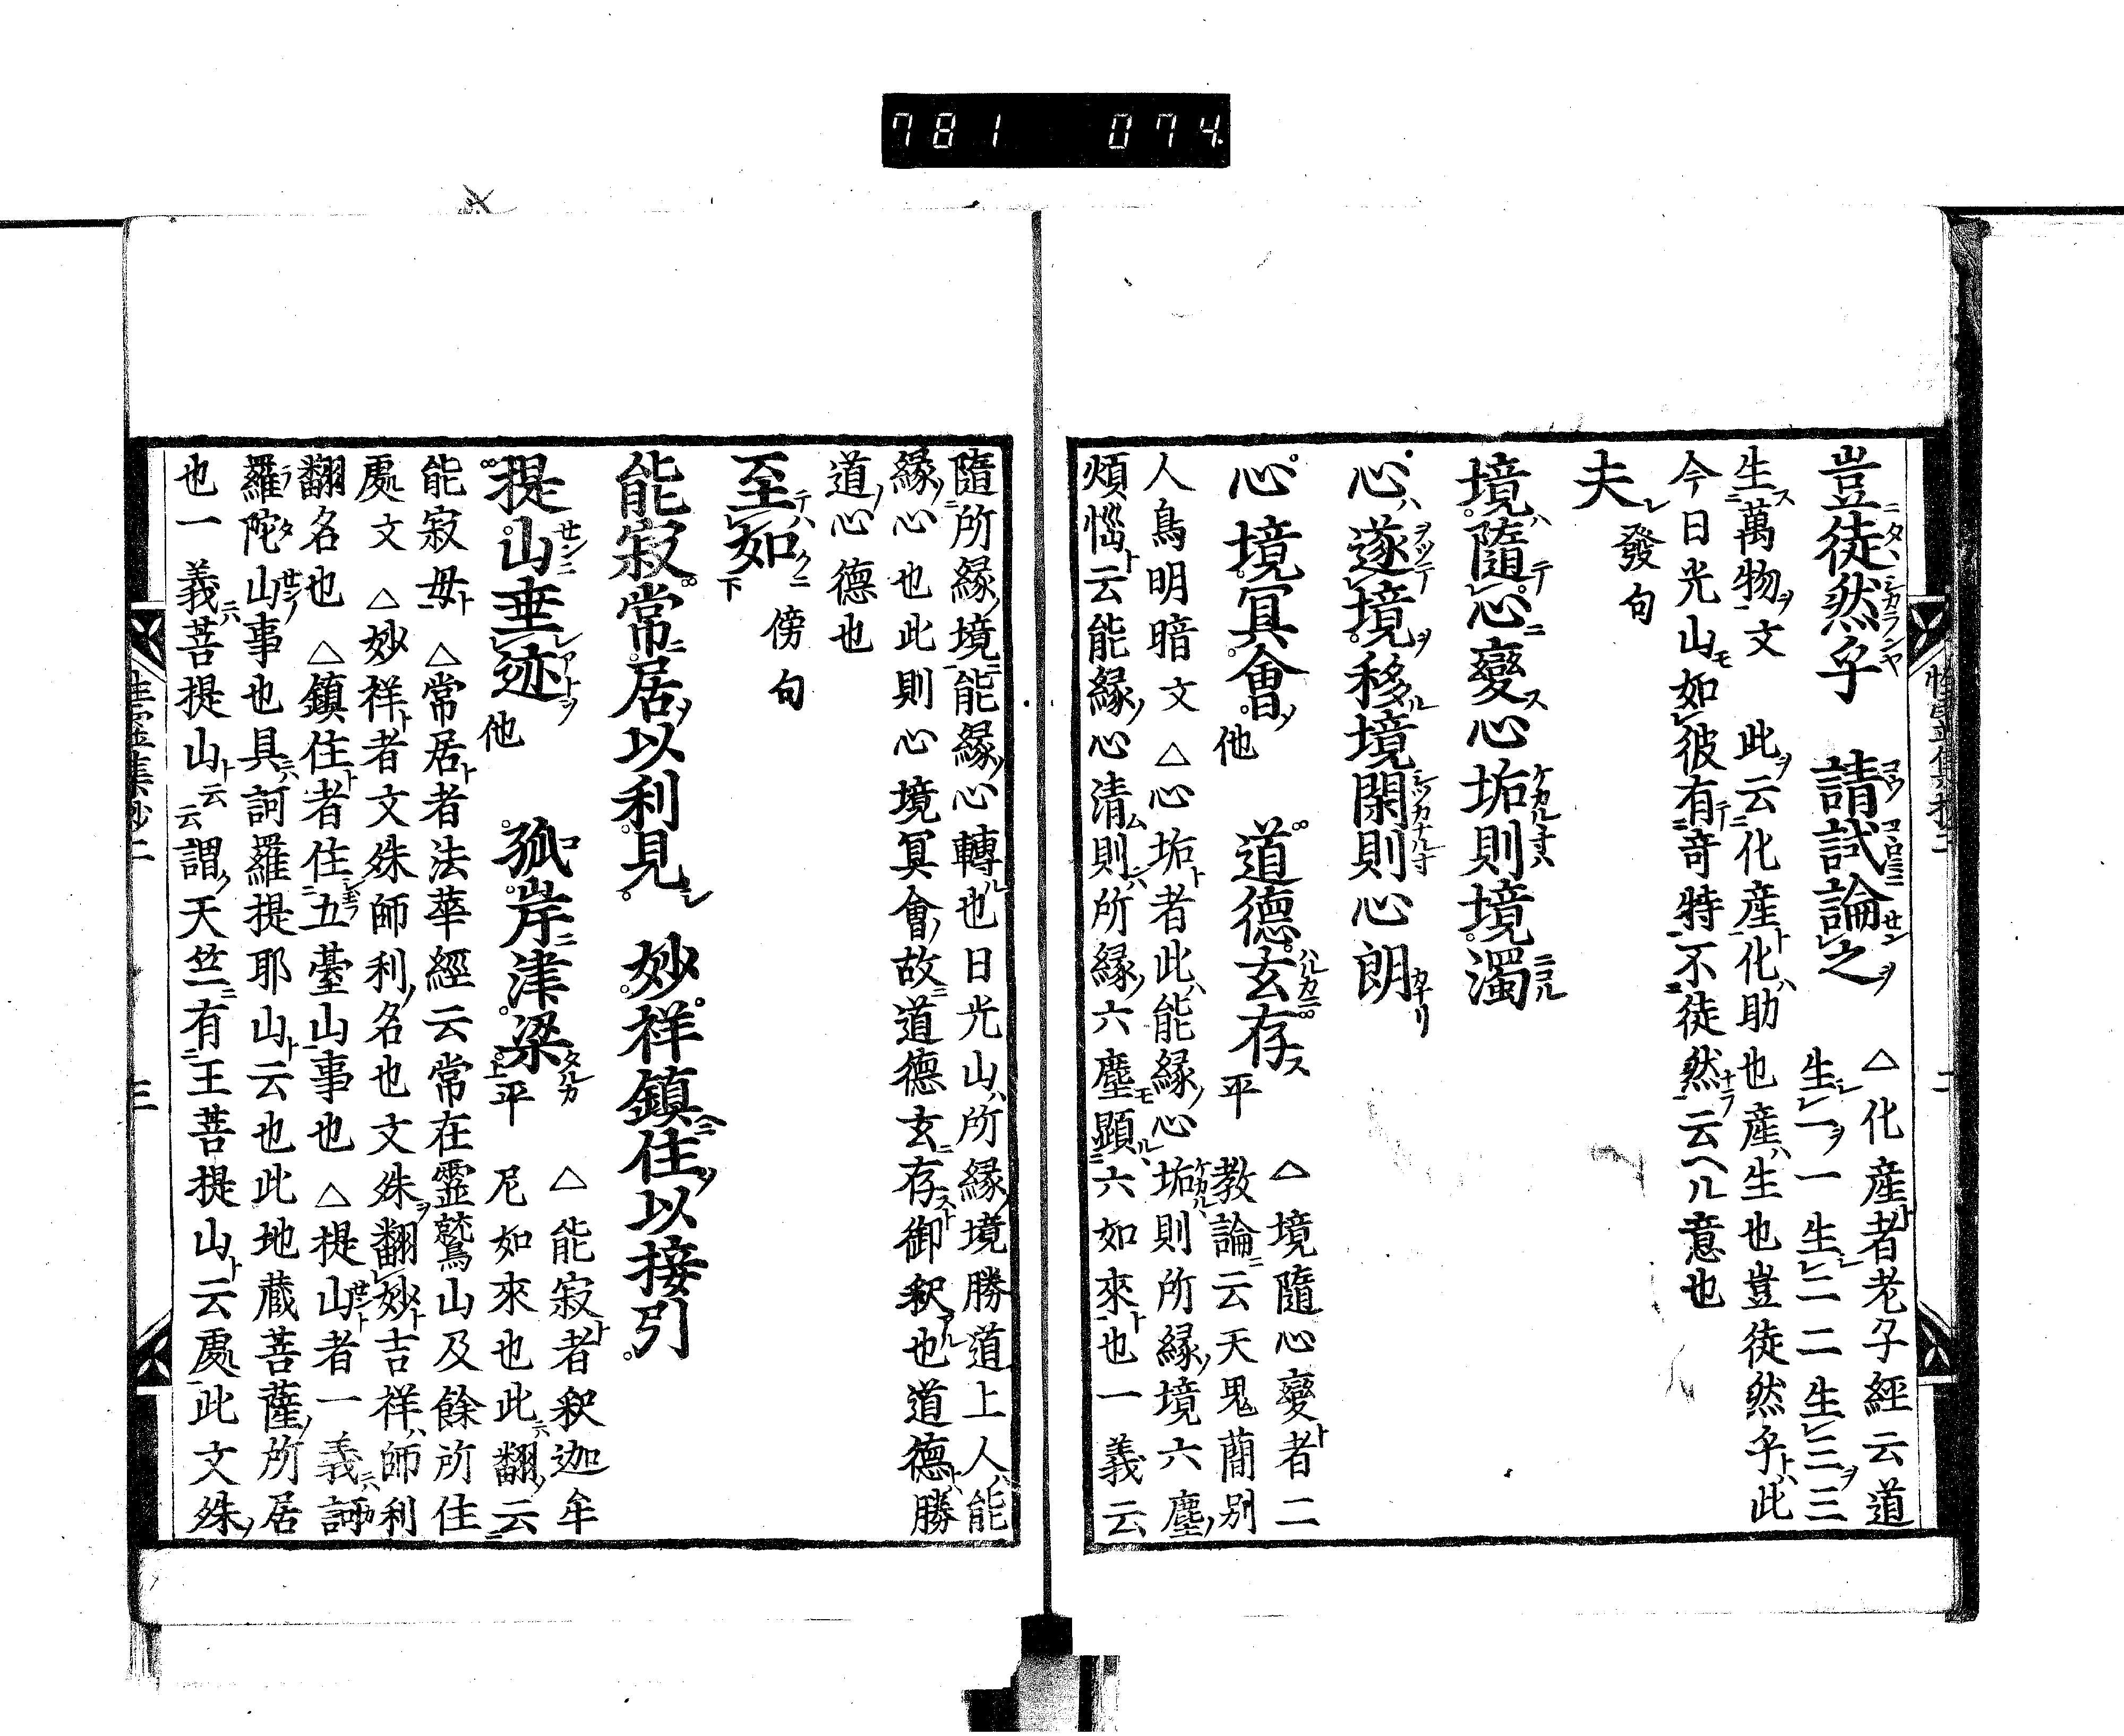 781 074
豈徒然乎 請試論之 △化産者老子經云道
生一一生二二生三三
生萬物文 此云化産化助也産生也豈徒然乎此
今日光山如彼有奇特不徒然云ヘル意也
夫 發句
境隨心變心垢則境濁
心遂境移境閑則心朗
心境冥會他 道德玄存平 △境隨心變者二
教論云天鬼蕳別
人鳥明暗文 △心垢者此能緣心垢則所緣境六塵
煩惱云能緣心清則所緣六塵顯六如來也一義云
隨所緣境能緣心轉也日光山所緣境勝道上人能
緣心也此則心境冥會故道德玄存御釈也道德勝
道心德也
至如下 傍句
能寂常居以利見 妙祥鎮住以接引
提山垂迹他 孤岸津梁平 △能寂者釈迦牟
尼如來也此翻云
能寂母 △常居者法華經云常在靈鷲山及餘所住
處文 △妙祥者文殊師利名也文殊翻妙吉祥師利
翻名也 △鎮住者住五臺山事也 △提山者一義訶
羅陀山事也具訶羅提耶山云也此地蔵菩薩所居
也一義菩提山云云謂天竺有王菩提山云處此文殊
三